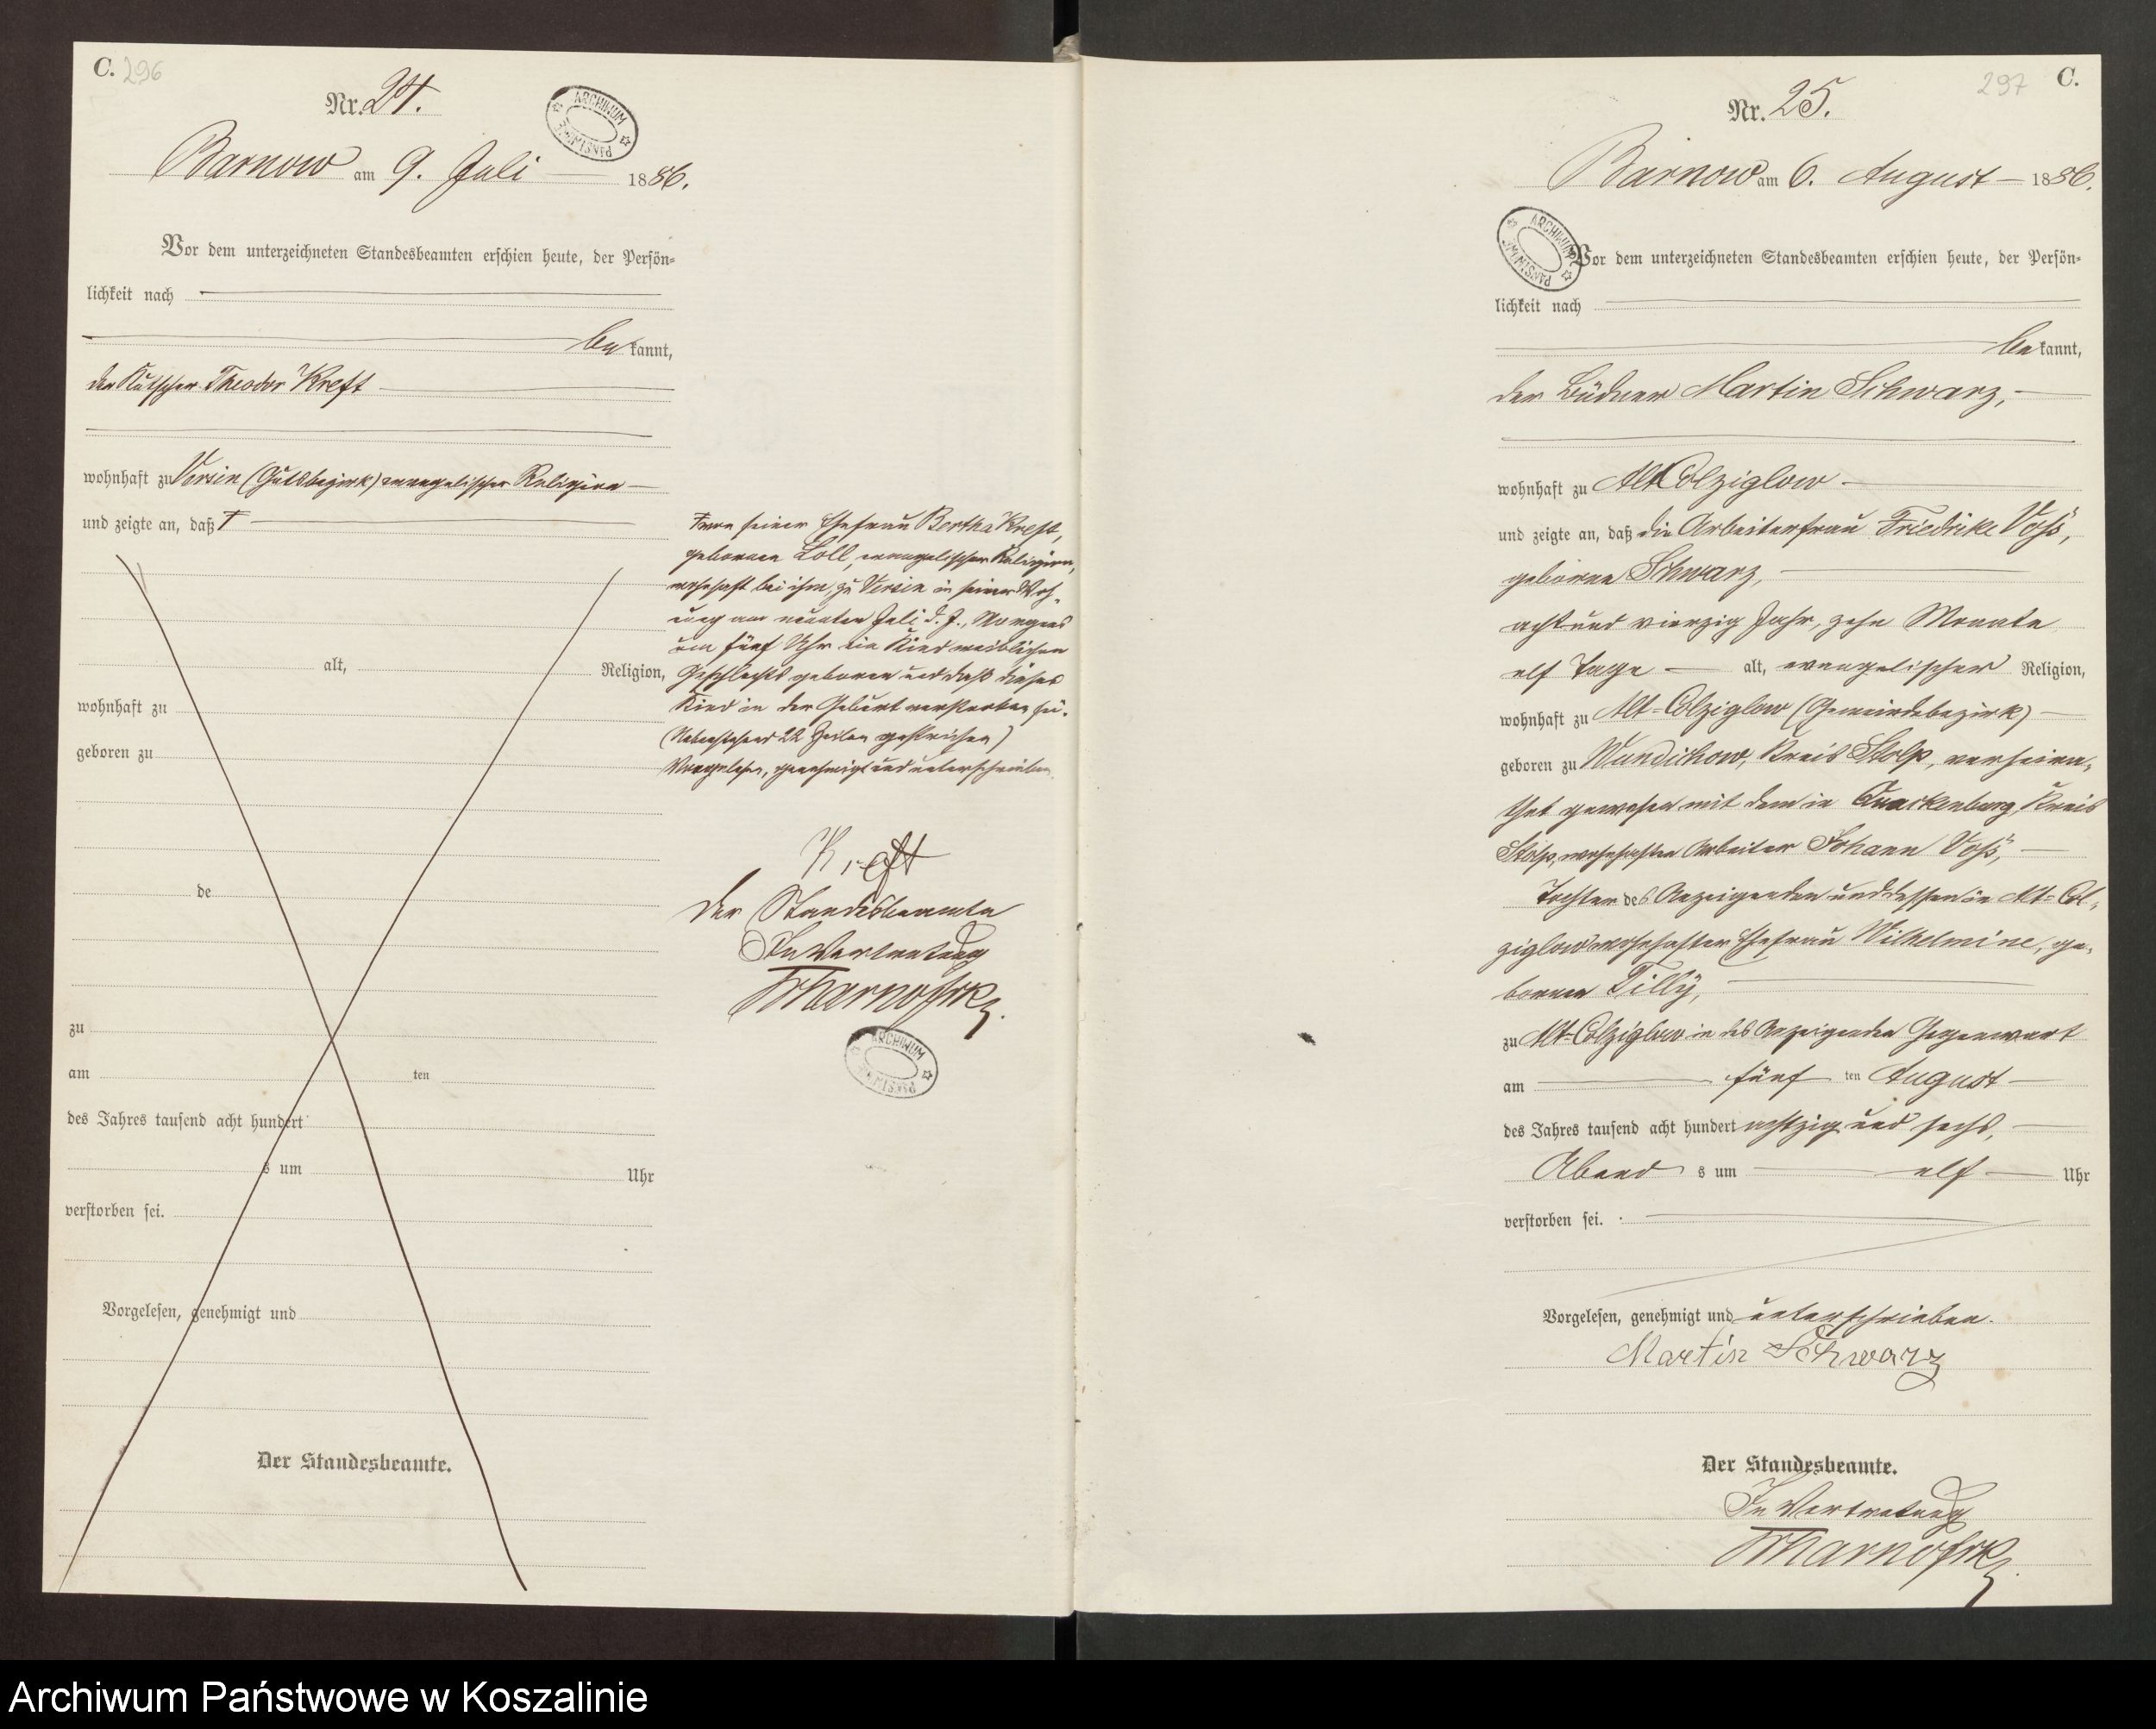 C. 296
Nr. 24.
ARCHIWUM PAŃSTWOWE
Barnow am 9. Juli 1886.
Vor dem unterzeichneten Standesbeamten erschien heute, der Persön-
lichkeit nach
be kannt,
der Kutscher Theodor Kreft
wohnhaft zu Versin (Gutsbezirk) evangelischer Religion
und zeigte an, daß
alt, Religion,
wohnhaft zu
geboren zu
de
zu
am ten
des Jahres tausend acht hundert
s um Uhr
verstorben sei.
Vorgelesen, genehmigt und
Der Standesbeamte.
von seiner Ehefrau Bertha Kreft,
geborenen Loll, evangelischer Religion,
wohnhaft bei ihm, zu Versin in seiner Woh-
nung am neunten Juli d. J., Morgens
um fünf Uhr ein Kind weiblichen
Geschlechts geboren und daß dieses
Kind in der Geburt verstorben sei.
(Nebenstehend 22 Zeilen gestrichen)
Vorgelesen, genehmigt und unterschrieben.
Kreft
Der Standesbeamte
In Vertretung
ARCHIWUM PAŃSTWOWE
297 C.
Nr. 25.
Barnow am 6. August 1886.
ARCHIWUM PAŃSTWOWE
Vor dem unterzeichneten Standesbeamten erschien heute, der Persön-
lichkeit nach
be kannt,
der Büdner Martin Schwarz,
wohnhaft zu Alt Colziglow
und zeigte an, daß die Arbeiterfrau Friedrike Voß,
geborene Schwarz,
acht und vierzig Jahr, zehn Monate
elf Tage alt, evangelischer Religion,
wohnhaft zu Alt-Colziglow (Gemeindebezirk)
geboren zu Wundichow, Kreis Stolp, verheira-
thet gewesen mit dem in Quackenburg, Kreis
Stolp, wohnhaften Arbeiter Johann Voß,
Tochter des Anzeigenden und dessen in Alt-Col-
ziglow wohnhafter Ehefrau Wilhelmine, ge-
borenen Tilly,
zu Alt-Colziglow in des Anzeigenden Gegenwart
am fünf ten August
des Jahres tausend acht hundert achtzig und sechs,
Abend s um elf Uhr
verstorben sei.
Vorgelesen, genehmigt und unterschrieben.
Martin Schwarz
Der Standesbeamte.
In Vertretung
Archiwum Państwowe w Koszalinie